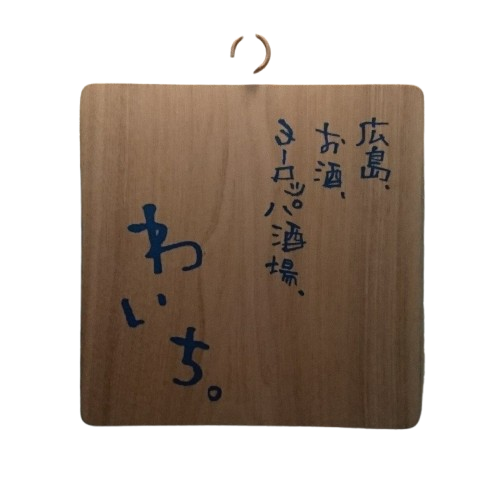 広島、
お酒、
ヨーロッパ酒場、
わいち。